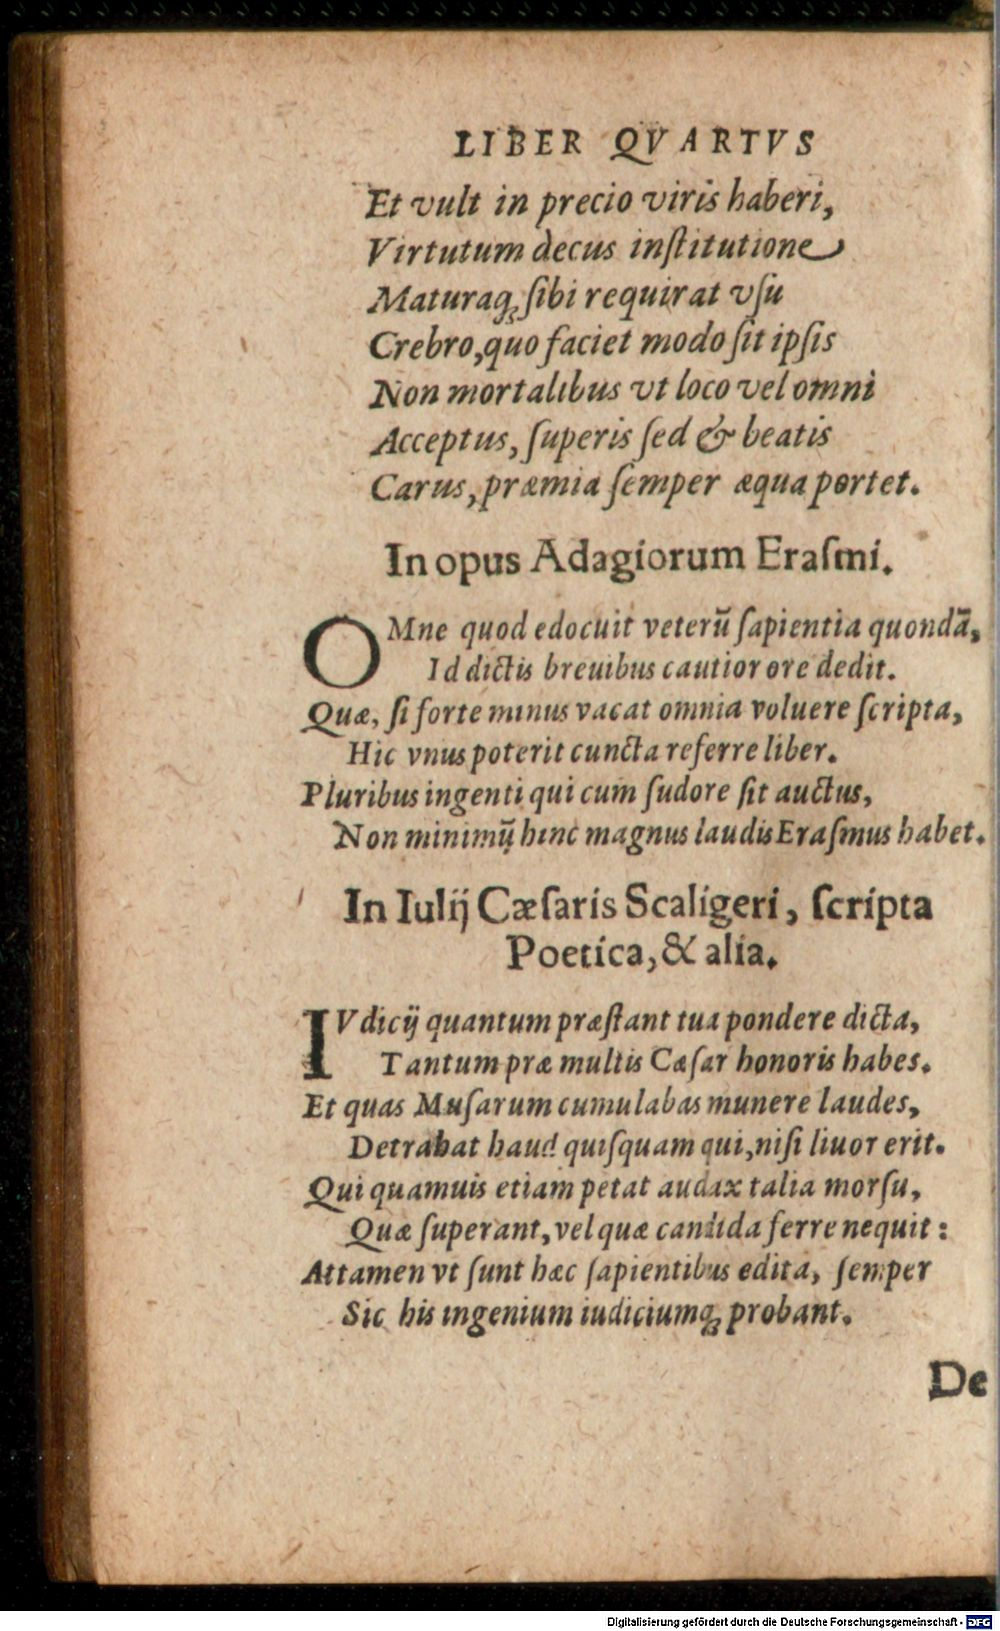 LIBER QVARTVS
Et vult in precio viris haberi,
Virtutum decus inſtitutione
Maturaq́; ſibi requirat vſu
Crebro, quo faciet modo ſit ipſis
Non mortalibus vt loco vel omni
Acceptus, ſuperis ſed & beatis
Carus, præmia ſemper æqua portet.
In opus Adagiorum Eraſmi.
OMne quod edocuit veterū ſapientia quondā,
Id dictis breuibus cautior ore dedit.
Quæ, ſi forte minus vacat omnia voluere ſcripta,
Hic vnus poterit cuncta referre liber.
Pluribus ingenti qui cum ſudore ſit auctus,
Non minimū hinc magnus laudis Eraſmus habet.
In Iulij Cæſaris Scaligeri, ſcripta
Poetica, & alia.
IVdicij quantum præſtant tua pondere dicta,
Tantum præ multis Cæſar honoris habes.
Et quas Muſarum cumulabas munere laudes,
Detrahat haud quiſquam qui, niſi liuor erit.
Qui quamuis etiam petat audax talia morſu,
Quæ ſuperant, vel quæ candida ferre nequit:
Attamen vt ſunt hæc ſapientibus edita, ſemper
Sic his ingenium iudiciumq; probant.
De
Digitalisierung gefördert durch die Deutsche Forschungsgemeinschaft - DFG